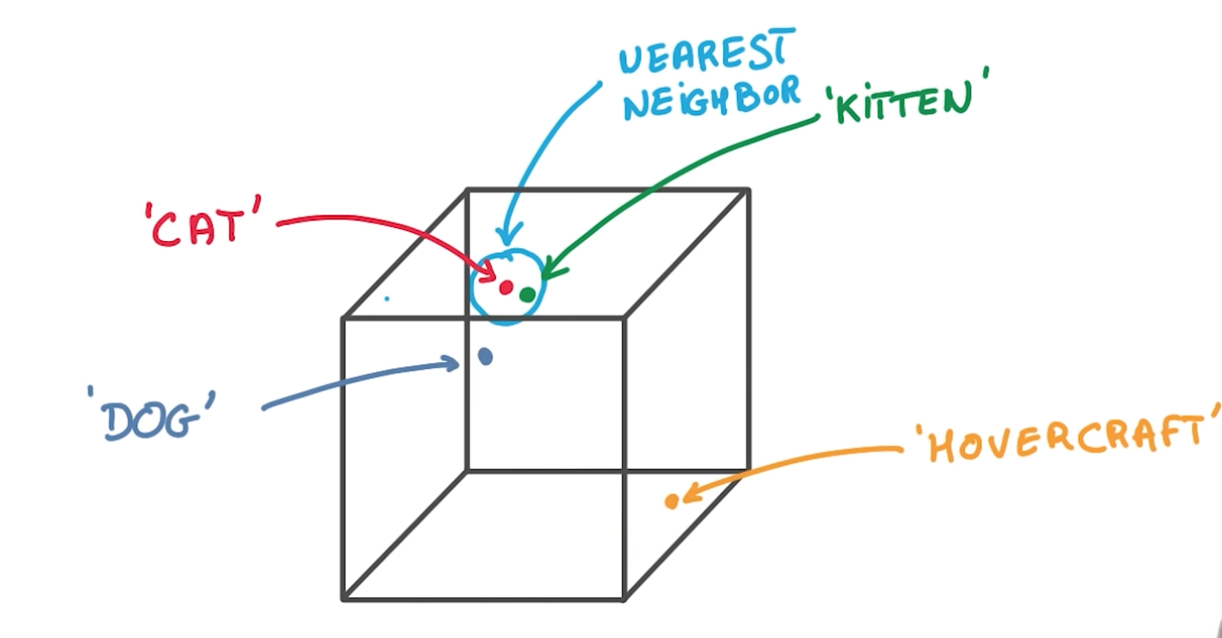 UEAREST
NEiGHBOR
'KiTTEN'
'CAT'
'DOG'
'HOVERCRAFT'